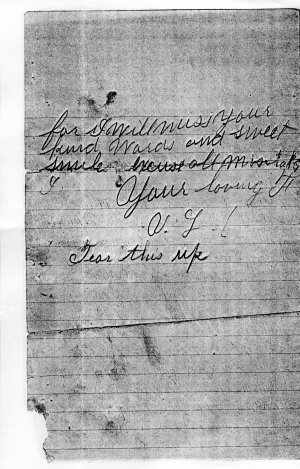 for I will miss your
kind words and sweet
smile excuse all mistakes
I
Your loving
V. L.
Tear this up